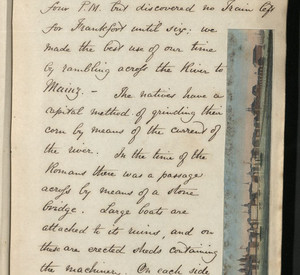 four P.M. but discovered no Train left
for Frankfort until six: we
made the best use of our time
by rambling across the River to
Mainz. - The natives have a
capital method of grinding their
corn by means of the current of
the river. In the time of the
Romans there was a passage
across by means of a stone
bridge. Large boats are
attached to its ruins, and on
these are erected sheds containing
the machinery. On each side